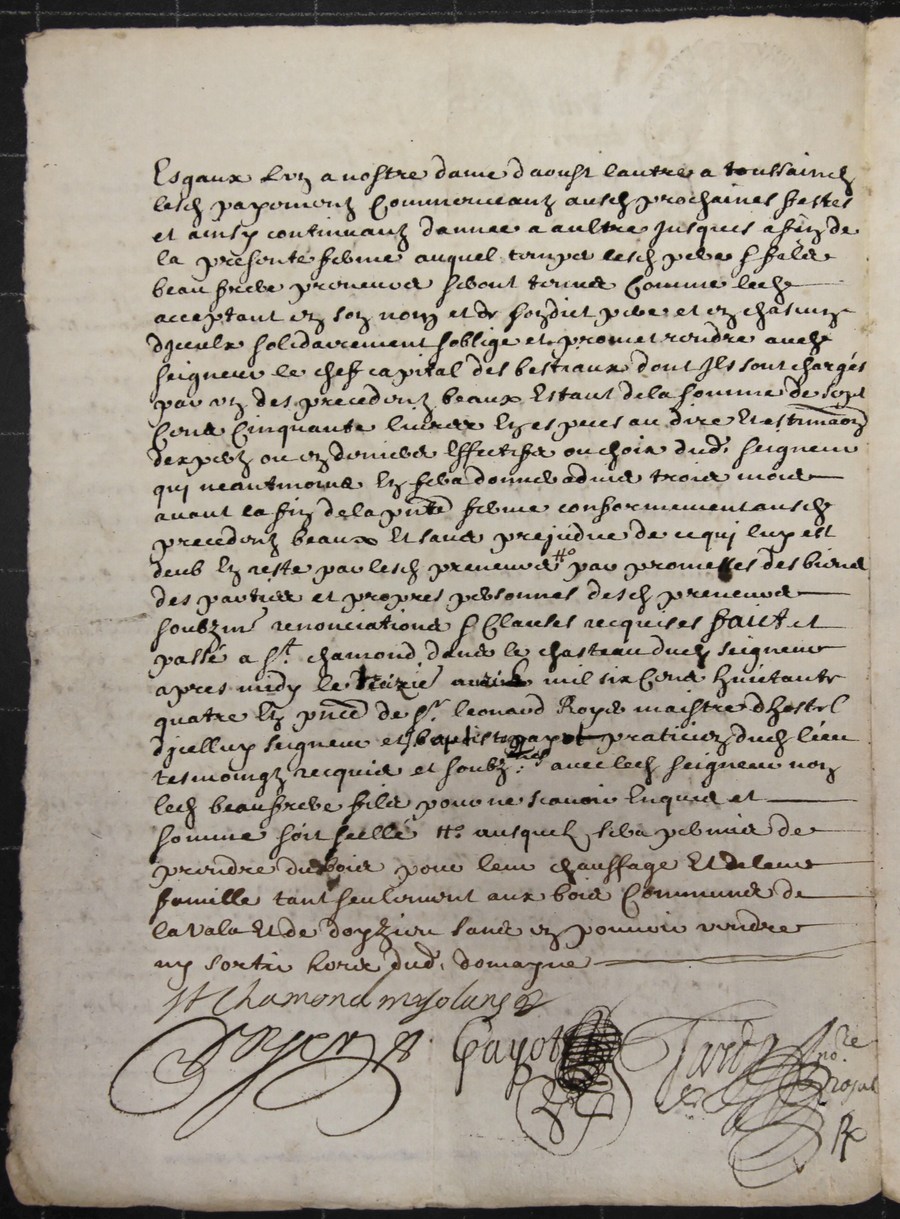 Esgaux L'un a nostre dame daoust lautre a toussainctz
lesd payements Commenceantz ausd prochaines festes
et ainsy continuantz dannee a aultre jusques a fin de
la presente ferme auquel temps lesd pere & fils
beau frere preneurs seront tenus Comme led
acceptant en son nom et de sondict pere et en chascung
dyceulx solidairement soblige et promet rendre aud
seigneur le chef capital des bestiaux dont Ils sont chargés
par un des precedentz beaux Estant de la somme de sept
Cens Cinquante livres En especes au dire Et estimaon
dexpertz ou en deniers effectifs au choix dud. seigneur
qui neantmoins En sera donner advis trois mois
avant la fin de la pnte ferme conformement ausd
precedentz beaux Et sans prejudice de ce qui luy est
deub En reste par lesd preneurs #o par promesses des biens
des parties et propres personnes desd preneurs
soubzmis renonciations & Clauses requises faict et
passé a St. chamond dans le chasteau dud seigneur
apres midy le mil six Cens huictante
quatre En pnce de Sr. leonard Royer maistre dhostel
dicelluy seigneur et baptiste gayot praticien dud lieu
tesmoingz requis et soubz.nes avec led seigneur non
led beau frere fils pour ne scavoir Enquis et
somme soit scellé #o ausquelz sera permis de
prendre du bois pour leur chauffage Et de leur
famille tant seulement aux bois Communs de
la Vala Et de doyzieu sans en pouvoir vendre
ny sortir hors dud. domayne
St Chamond
Royer Gayot Tardy nore royal